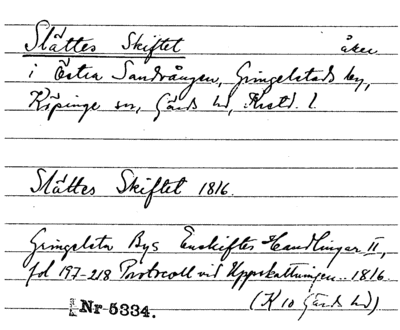 Slättes Skiftet åker
i Östra Sandvången, Gringelstads by,
Köpinge sn, Gärds hd, Krstd. l.
Slättes Skiftet 1816.
Gringelsta Bys Enskiftes Handlingar II,
fol 197-218 Protocoll vid Uppskattningen.. 1816.
(K 10 Gärds hd)
Nr 5334.